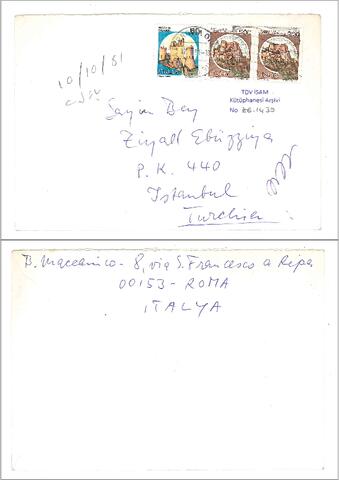 10/10/81
TDV İSAM
Kütüphanesi Arşivi
No ZE.1439
Sayın Bay
Ziyatt Ebüzziya
P. K. 440
Istanbul
Turchia
B. Maccanico - 8, via S. Francesco a Ripa
00153 - ROMA
ITALYA